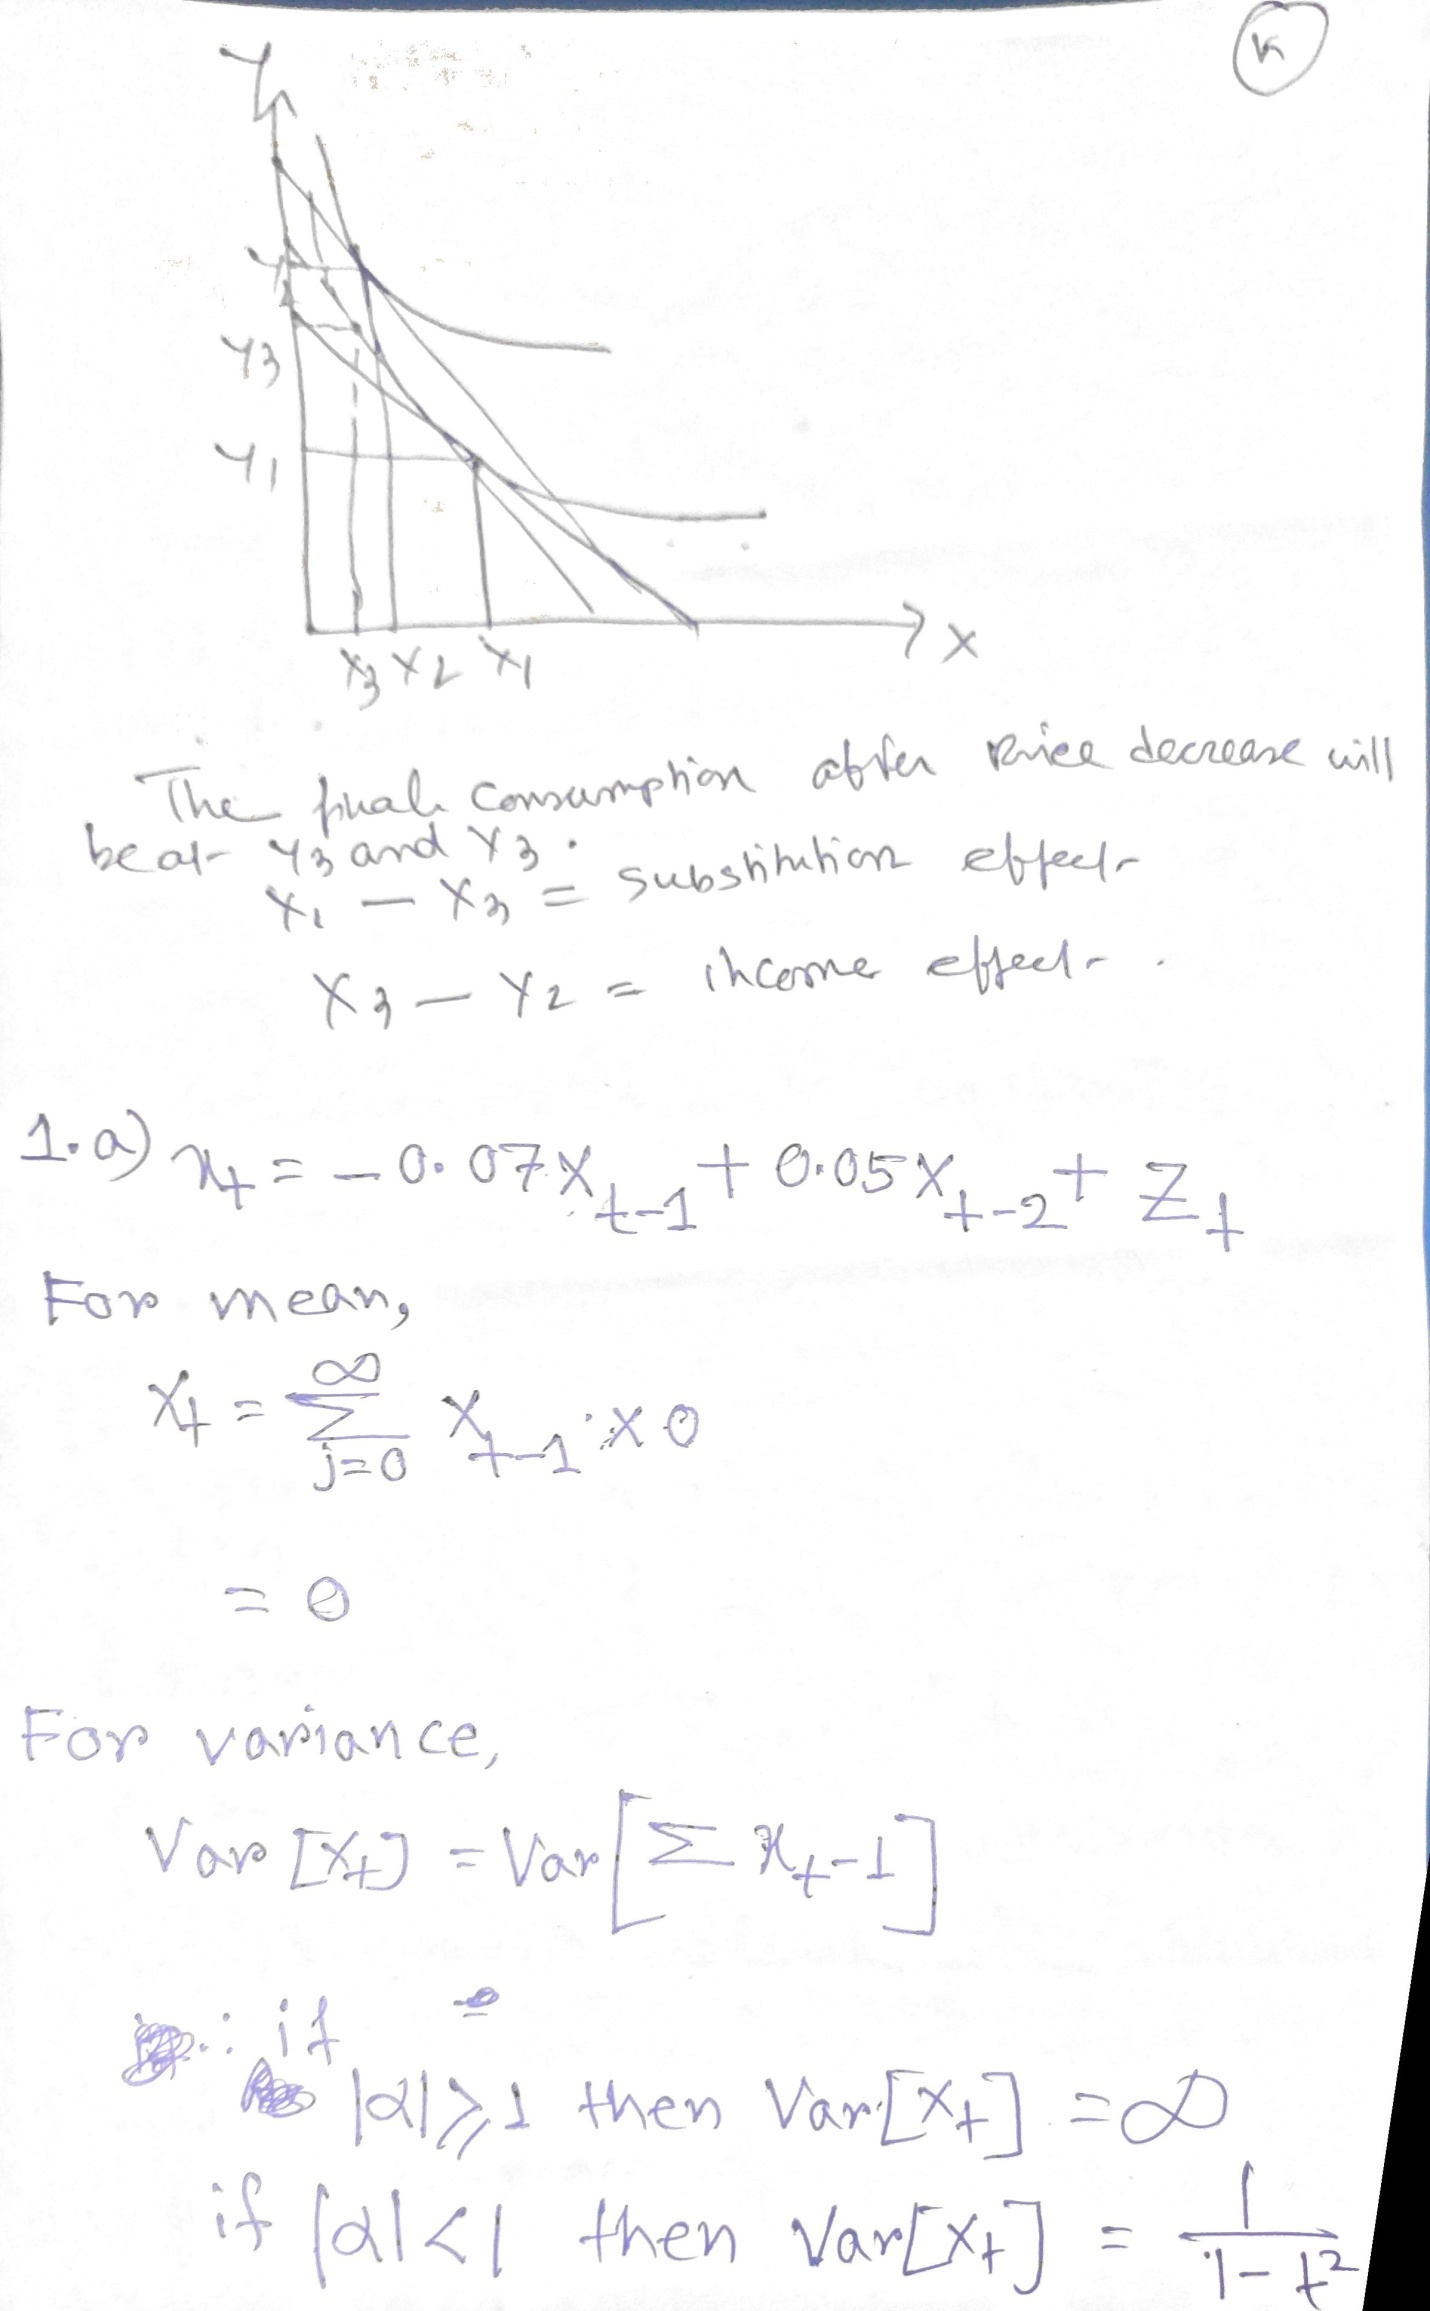 Y
Y3
Y1
X3 X2 X1
X
The final consumption after Price decrease will
be at Y3 and X3.
X1 - X3 = substitution effect
X3 - X2 = income effect.
1.a) x_t = -0.07X_{t-1} + 0.05X_{t-2} + Z_t
For mean,
X_t = ∑_{j=0}^{∞} X_{t-1} × 0
= 0
For variance,
Var [X_t] = Var [∑ x_{t-1}]
∴ if
|α| ≥ 1 then Var[X_t] = ∞
if |α| < 1 then Var[X_t] = 1/(1-t²)